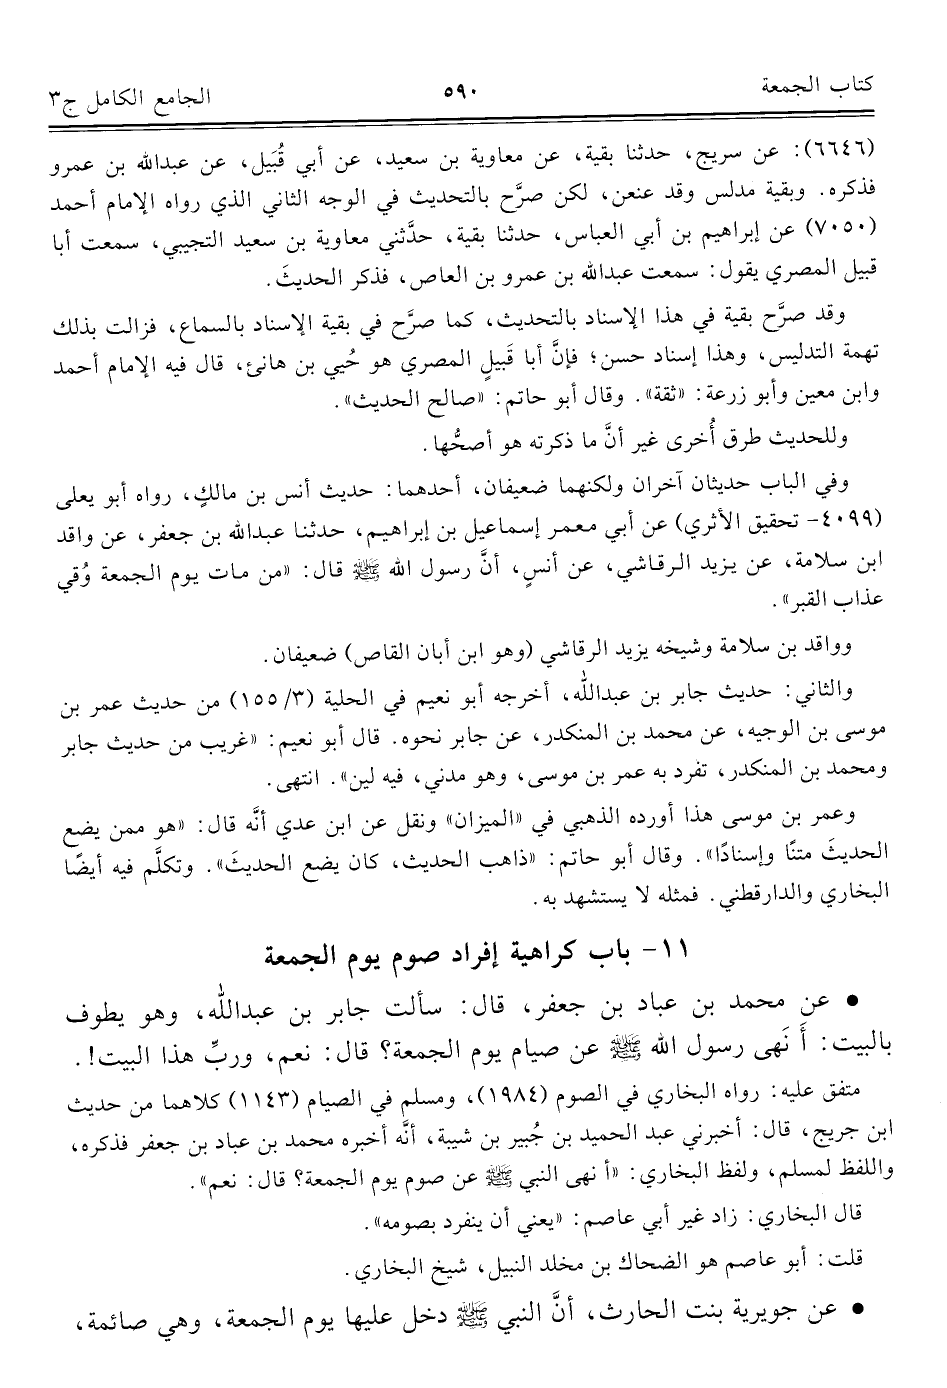 كتاب الجمعة ٥٩٠ الجامع الكامل ج٣
(٦٦٤٦): عن سريج، حدثنا بقية، عن معاوية بن سعيد، عن أبي قُبَيل، عن عبدالله بن عمرو
فذكره. وبقية مدلس وقد عنعن، لكن صرَّح بالتحديث في الوجه الثاني الذي رواه الإمام أحمد
(٧٠٥٠) عن إبراهيم بن أبي العباس، حدثنا بقية، حدَّثني معاوية بن سعيد التجيبي، سمعت أبا
قبيل المصري يقول: سمعت عبدالله بن عمرو بن العاص، فذكر الحديثَ.
وقد صرَّح بقية في هذا الإسناد بالتحديث، كما صرَّح في بقية الإسناد بالسماع، فزالت بذلك
تهمة التدليس، وهذا إسناد حسن؛ فإنَّ أبا قَبيلٍ المصري هو حُيي بن هانئ، قال فيه الإمام أحمد
وابن معين وأبو زرعة: «ثقة». وقال أبو حاتم: «صالح الحديث».
وللحديث طرق أُخرى غير أنَّ ما ذكرته هو أصحُّها.
وفي الباب حديثان آخران ولكنهما ضعيفان، أحدهما: حديث أنس بن مالكٍ، رواه أبو يعلى
(٤٠٩٩- تحقيق الأثري) عن أبي معمر إسماعيل بن إبراهيم، حدثنا عبدالله بن جعفر، عن واقد
ابن سلامة، عن يزيد الرقاشي، عن أنسٍ، أنَّ رسول الله ﷺ قال: «من مات يوم الجمعة وُقي
عذاب القبر».
وواقد بن سلامة وشيخه يزيد الرقاشي (وهو ابن أبان القاص) ضعيفان.
والثاني: حديث جابر بن عبدالله، أخرجه أبو نعيم في الحلية (٣/ ١٥٥) من حديث عمر بن
موسى بن الوجيه، عن محمد بن المنكدر، عن جابر نحوه. قال أبو نعيم: «غريب من حديث جابر
ومحمد بن المنكدر، تفرد به عمر بن موسى، وهو مدني، فيه لين». انتهى.
وعمر بن موسى هذا أورده الذهبي في «الميزان» ونقل عن ابن عدي أنَّه قال: «هو ممن يضع
الحديثَ متنًا وإسنادًا». وقال أبو حاتم: «ذاهب الحديث، كان يضع الحديثَ». وتكلَّم فيه أيضًا
البخاري والدارقطني. فمثله لا يستشهد به.
١١- باب كراهية إفراد صوم يوم الجمعة
• عن محمد بن عباد بن جعفر، قال: سألت جابر بن عبدالله، وهو يطوف
بالبيت: أَ نَهى رسول الله ﷺ عن صيام يوم الجمعة؟ قال: نعم، وربِّ هذا البيت!.
متفق عليه: رواه البخاري في الصوم (١٩٨٤)، ومسلم في الصيام (١١٤٣) كلاهما من حديث
ابن جريج، قال: أخبرني عبد الحميد بن جُبير بن شيبة، أنَّه أخبره محمد بن عباد بن جعفر فذكره،
واللفظ لمسلم، ولفظ البخاري: «أ نهى النبي ﷺ عن صوم يوم الجمعة؟ قال: نعم».
قال البخاري: زاد غير أبي عاصم: «يعني أن ينفرد بصومه».
قلت: أبو عاصم هو الضحاك بن مخلد النبيل، شيخ البخاري.
• عن جويرية بنت الحارث، أنَّ النبي ﷺ دخل عليها يوم الجمعة، وهي صائمة،